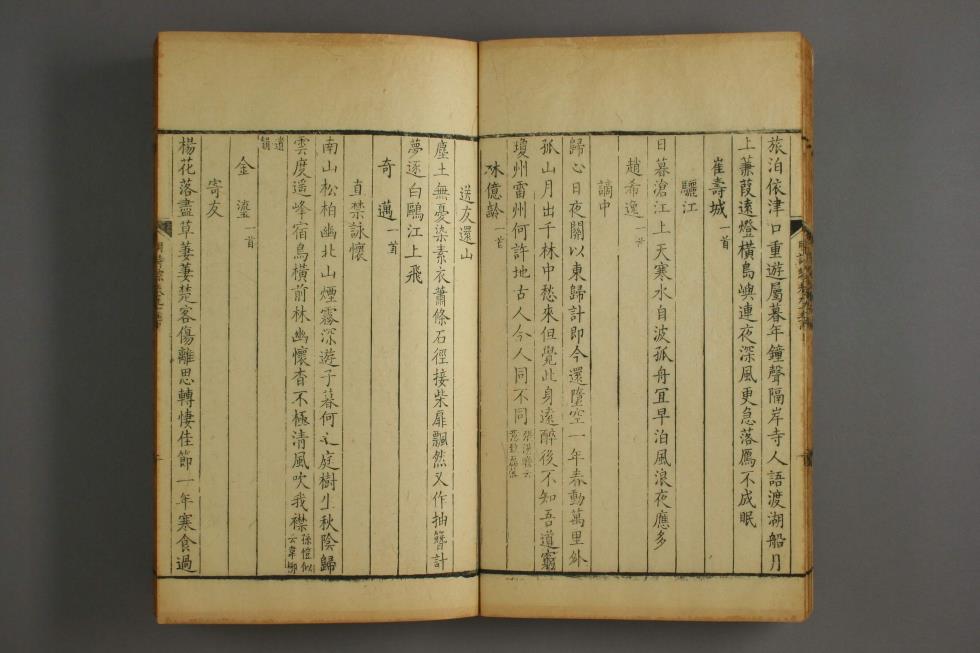 旅泊依津口重遊屬暮年鐘聲隔岸寺人語渡湖船月
上蒹葭遠燈橫島嶼連夜深風更急落鴈不成眠
崔壽城一首
驪江
日暮滄江上天寒水自波孤舟宜早泊風浪夜應多
趙希逸一首
謫中
歸心日夜關以東歸計即今還墮空一年春動萬里外
孤山月出千林中愁來但覺此身遠醉後不知吾道窮
瓊州雷州何許地古人今人同不同
林億齡一首
送友還山
塵土無憂染素衣蕭條石徑接柴扉飄然又作抽簪計
夢逐白鷗江上飛
奇邁一首
直禁詠懷
南山松柏幽北山煙霧深遊子暮何之庭樹生秋陰歸
雲度遥峰宿鳥橫前林幽懷杳不極清風吹我襟孫愷似云韋柳
遺韻
金瑬一首
寄友
楊花落盡草萋萋楚客傷離思轉悽佳節一年寒食過